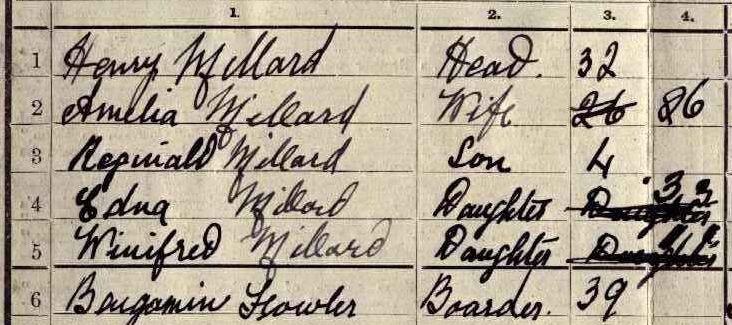 1. 2. 3. 4.
1 Henry Millard Head. 32
2 Amelia Millard Wife 26 26
3 Reginald Millard Son 4
4 Edna Millard Daughter Daughter 3
5 Winifred Millard Daughter Daughter
6 Bengamin Fowler Boarder. 39